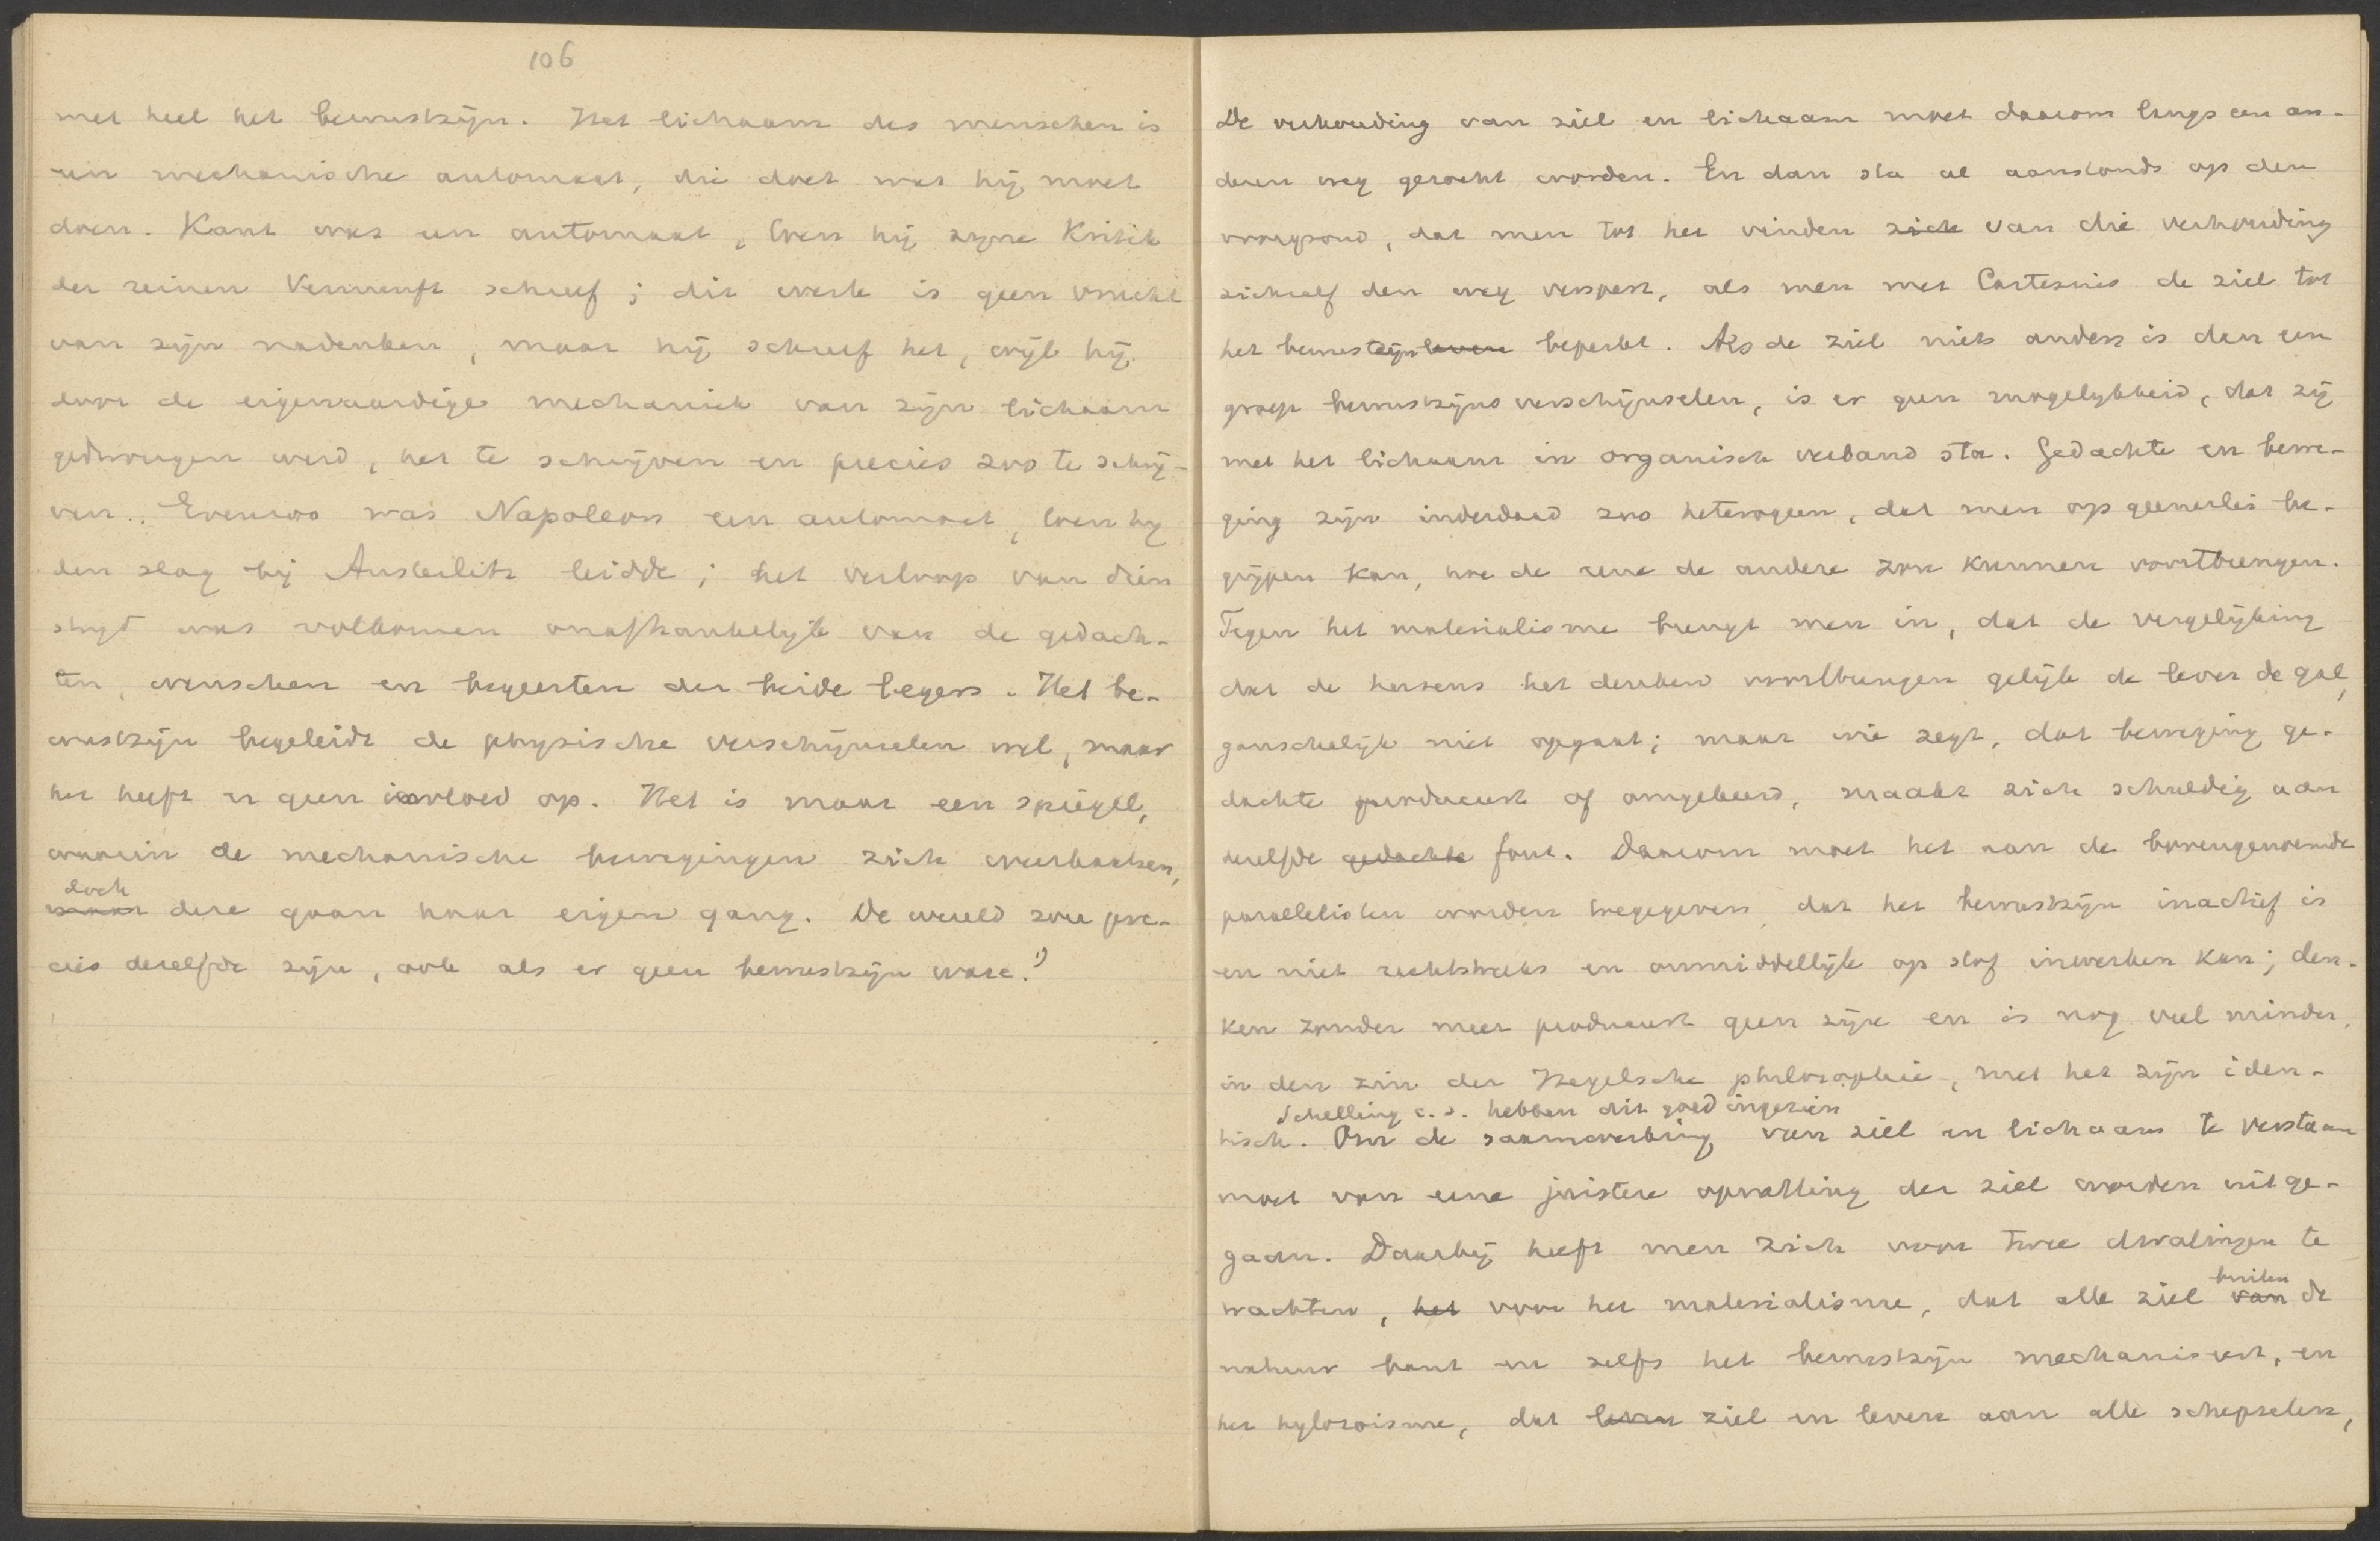 106
met heel het bewustzijn. Het lichaam des menschen is
een mechanische automaat, die doet wat hij moet
doen. Kant was een automaat, toen hij zijne Kritik
der reinen Vernunft schreef; dit werk is geen vrucht
van zijn nadenken, maar hij schreef het, wijl hij
door de eigenaardige mechaniek van zijn lichaam
gedwongen werd, het te schrijven en precies zoo te schrij-
ven. Evenzoo was Napoleon een automaat, toen hij
den slag bij Austerlitz leidde; het verloop van dien
strijd was volkomen onafhankelijk van de gedach-
ten, wenschen en begeerten der beide legers. Het be-
wustzijn begeleidt de physische verschijnselen wel, maar
het heeft er geen invloed op. Het is maar een spiegel,
waarin de mechanische bewegingen zich weerkaatsen,
doch
maar deze gaan haar eigen gang. De wereld zou pre-
cies dezelfde zijn, ook als er geen bewustzijn ware.1)
De verhouding van ziel en lichaam moet daarom langs een an-
deren weg gezocht worden. En dan sta al aanstonds op den
voorgrond, dat men tot het vinden zich van die verhouding
zichzelf den weg verspert, als men met Cartesius de ziel tot
het bewustzijn leven beperkt. Als de ziel niets anders is dan een
groep bewustzijnsverschijnselen, is er geen mogelijkheid, dat zij
met het lichaam in organisch verband sta. Gedachte en bewe-
ging zijn inderdaad zoo heterogeen, dat men op geenerlei be-
grijpen kan, hoe de eene de andere zou kunnen voortbrengen.
Tegen het materialisme brengt men in, dat de vergelijking
dat de hersens het denken voortbrengen gelijk de lever de gal,
ganschelijk niet opgaat; maar wie zegt, dat beweging ge-
dachte produceert of omgekeerd, maakt zich schuldig aan
dezelfde gedachte fout. Daarom moet het aan de bovengenoemde
parallelisten worden toegegeven dat het bewustzijn inactief is
en niet rechtstreeks en onmiddellijk op stof inwerken kan; den-
ken zonder meer produceert geen zijn en is nog veel minder,
in den zin der Hegelsche philosophie, met het zijn iden-
Schelling e.a. hebben dit goed ingezien
tisch. Om de saamwerking van ziel en lichaam te verstaan
moet van eene juistere opvatting der ziel worden uitge-
gaan. Daarbij heeft men zich voor twee dwalingen te
wachten, het voor het materialisme, dat alle ziel van de
buiten
natuur bant en zelfs het bewustzijn mechaniseert, en
het hylozoisme, dat leven ziel en leven aan alle schepselen,